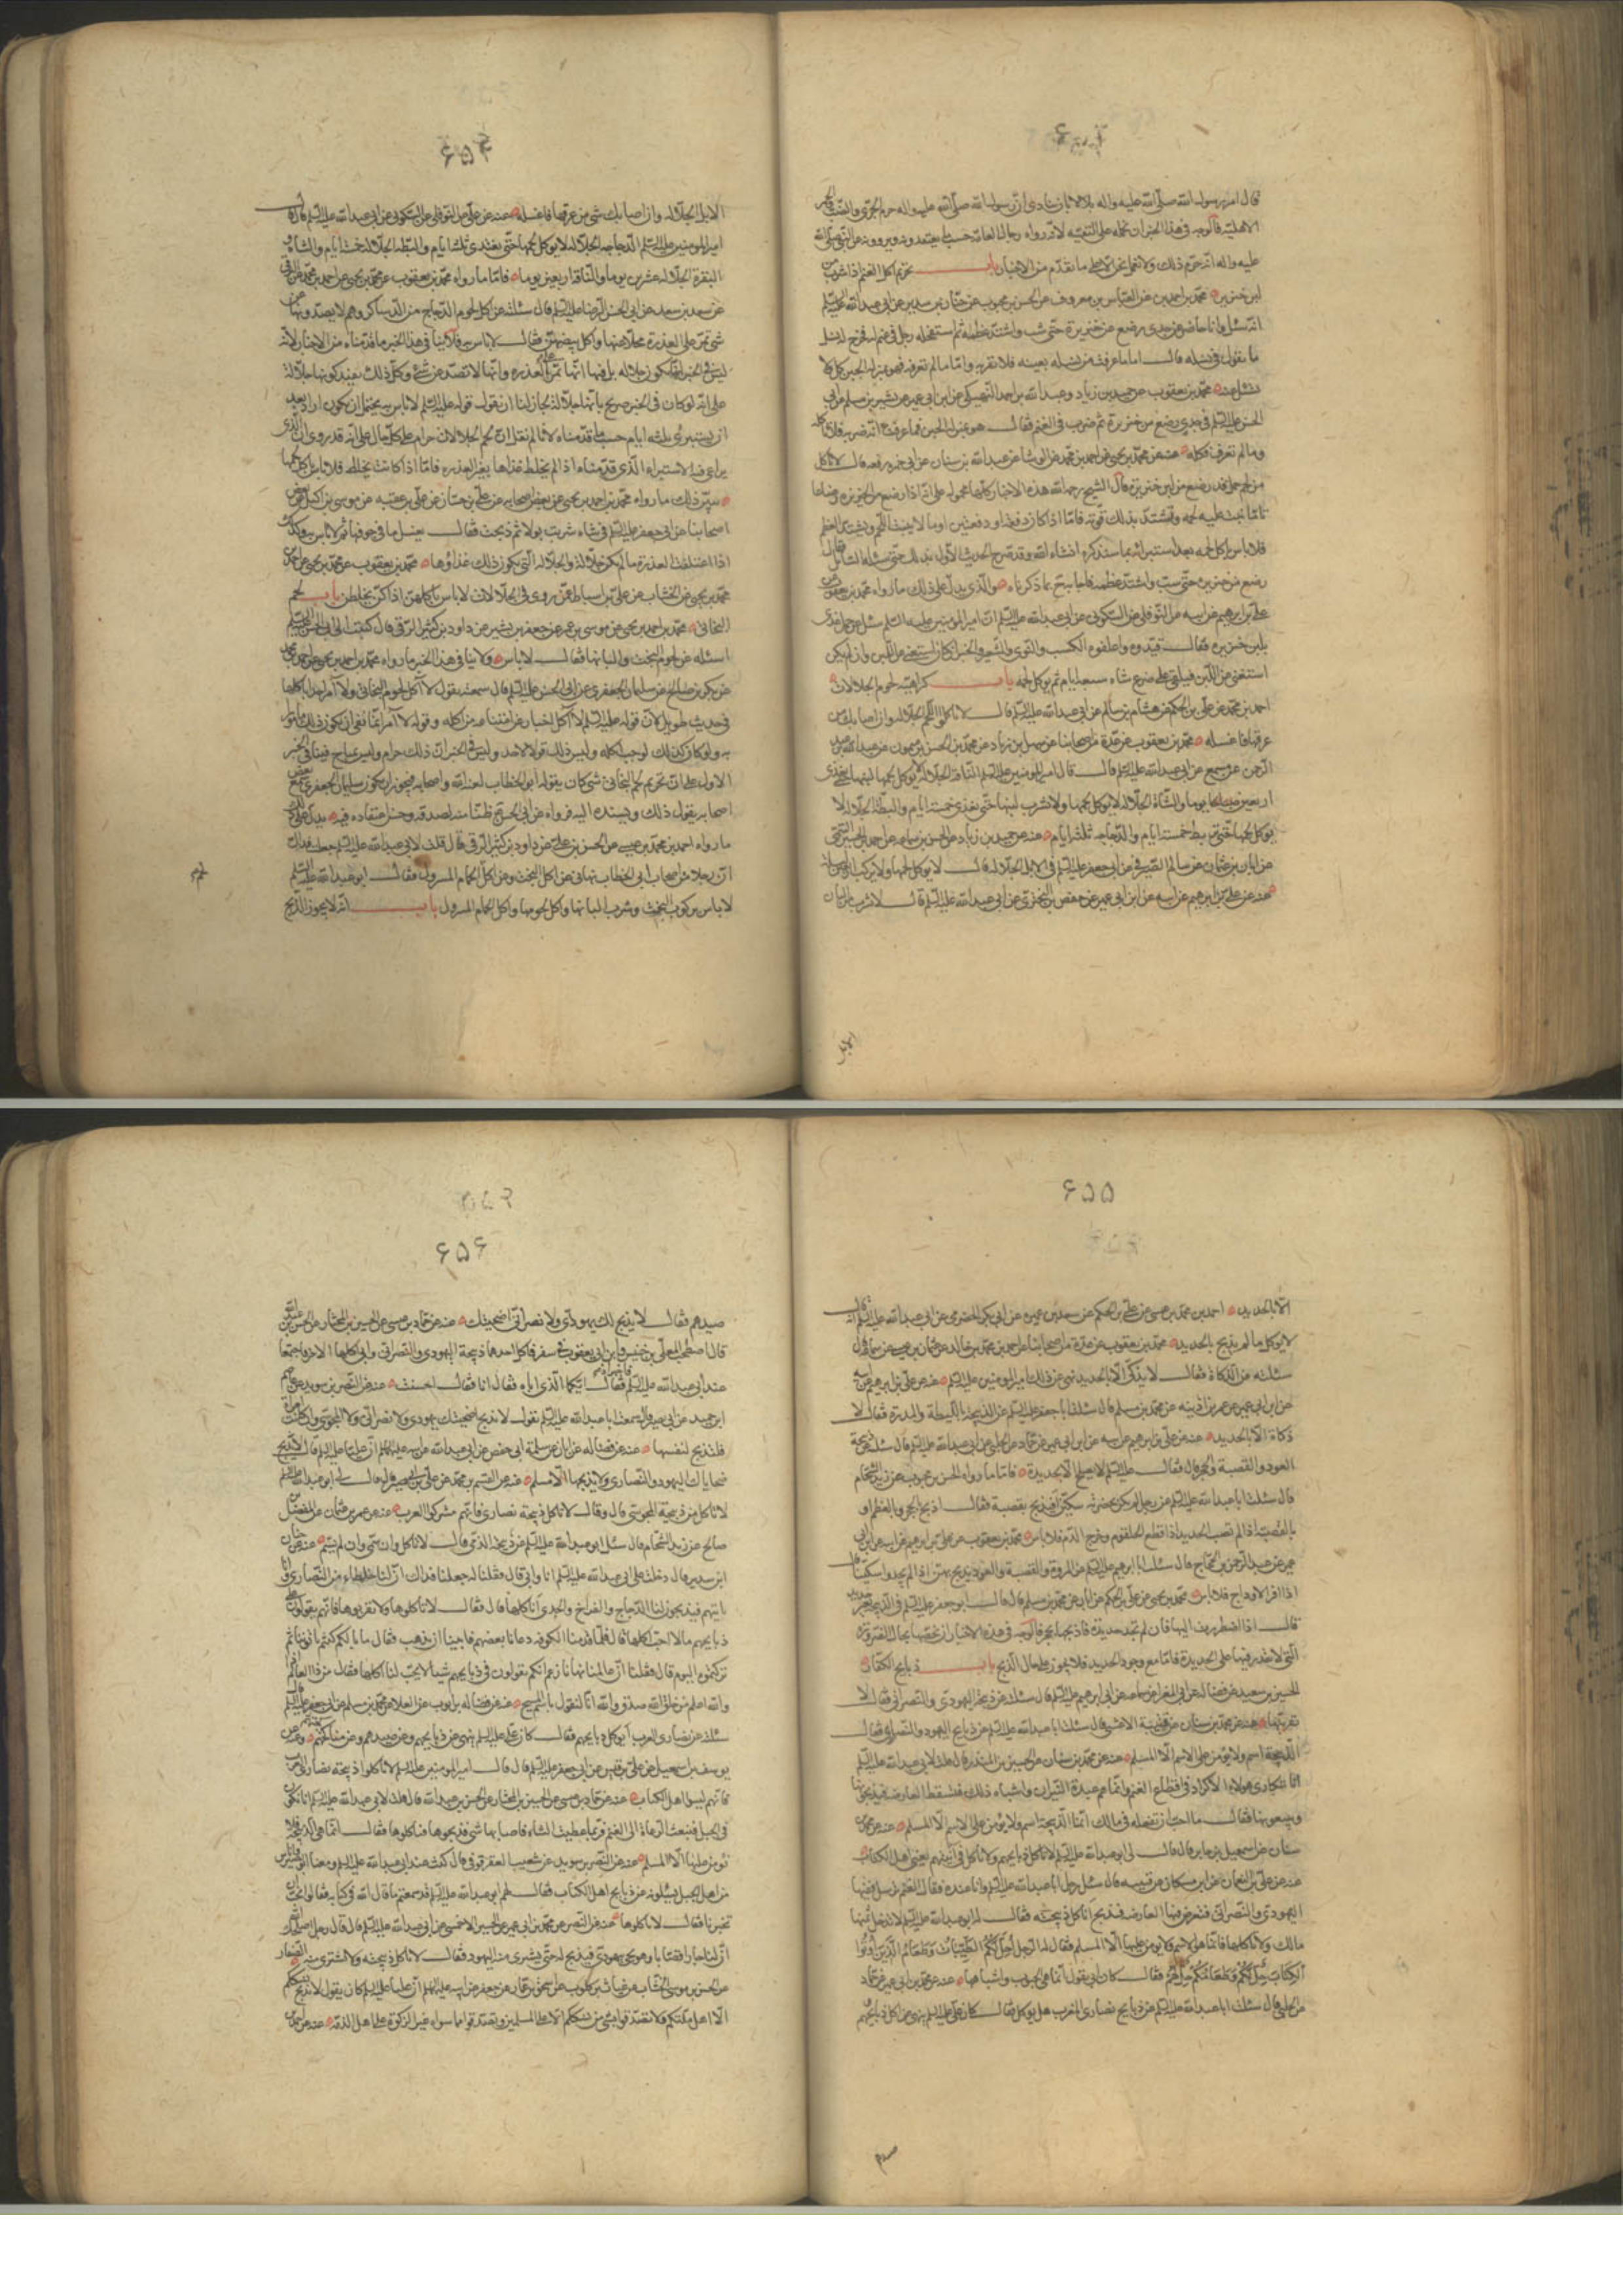 ۶۵۳
قال امر رسول الله صلّى الله عليه واله بلالا بان ينادى ان رسول الله صلّى الله عليه واله حرم الجرّى والضبّ والحمر
الاهلية فالوجه فى هذا الخبر ان نحمله على التقية لانه رواه رجال العامة حسب ما يعتقدونه ويروونه عن النبى صلى الله
عليه واله انه حرّم ذلك ولا نعمل نحن الا على ما تقدّم من الاخبار باب تحريم اكل الغنم اذا شرب من
لبن خنزير محمد بن احمد بن عن العباس بن معروف عن الحسن بن محبوب عن حنان بن سدير عن ابى عبد الله عليه السلم
انه سئل وانا حاضر عن جدى رضع من خنزيرة حتى شب واشتد عظمه ثم استفحله رجل فى غنمه فخرج له نسل
ما تقول فى نسله قال اما ما عرفت من نسله بعينه فلا تقربه واما ما لم تعرفه فهو بمنزلة الجبن كل ولا
تسئل عنه محمد بن يعقوب عن حميد بن زياد وعبد الله بن احمد النهيكى عن ابن ابى عمير عن بشير بن مسلم عن ابى
الحسن عليه السلم فى جدى رضع من خنزيرة ثم ضرب فى الغنم فقال هو بمنزلة الجبن فما عرفت انه ضربه فلا تاكله
وما لم تعرف فكله عنه عن محمد بن يحيى عن احمد بن محمد عن الوشا عن عبد الله بن سنان عن ابى حمزه رفعه قال لا تاكل
من لحم حمل قد رضع من لبن خنزيرة قال الشيخ رحمه الله هذه الاخبار كلها محمولة على انه اذا رضع من الخنزيرة رضاعا
تاما نبت عليه لحمه وتشتد بذلك قوّته فامّا اذا كان دفعة او دفعتين او ما لا ينبت اللحم ويشتد العظم
فلا باس باكل لحمه بعد استبرائه بما سنذكره انشاء الله وقد صرّح الحديث الاول بذلك حتى سئله السائل فقال
رضع من خنزيرة حتى شب واشتد عظمه فاجابه بما ذكرناه والذى يدل على ذلك ما رواه محمد بن يعقوب عن
على بن ابرهيم عن ابيه عن النوفلى عن السكونى عن ابى عبد الله عليه السلم ان امير المؤمنين عليه السلم سئل عن حمل غذى
بلبن خنزيرة فقال قيّدوه واعلفوه الكسب والنوى والشعير والخبز ان كان استغنى عن اللبن وان لم يكن
استغنى عن اللبن فيلقى على ضرع شاة سبعة ايام ثم يوكل لحمه باب كراهية لحوم الجلالات
احمد بن محمد عن على بن الحكم عن هشام بن سالم عن ابى عبد الله عليه السلم قال لا تاكلوا لحوم الجلالة وان اصابك من
عرقها فاغسله محمد بن يعقوب عن عدّة من اصحابنا عن سهل بن زياد عن محمد بن الحسن بن شمون عن عبد الله بن عبد
الرحمن عن مسمع عن ابى عبد الله عليه السلم قال قال امير المؤمنين عليه السلم الناقة الجلالة لا يوكل لحمها ولا يشرب لبنها حتى تغذى
اربعين يوما والشاة الجلالة لا يوكل لحمها ولا يشرب لبنها حتى تغذى خمسة ايام والبطة الجلالة لا
يوكل لحمها حتى تربط خمسة ايام والدجاجة ثلثة ايام عنه عن حميد بن زياد عن الحسن بن سماعة عن احمد بن الحسن الميثمى
عن ابان بن عثمان عن بسام الصيرفى عن ابى جعفر عليه السلم فى الابل الجلالة قال لا يوكل لحمها ولا يركب اربعين يوما
عنه عن على بن ابرهيم عن ابيه عن ابن ابى عمير عن حفص بن البخترى عن ابى عبد الله عليه السلم قال لا تشرب من البان
الابل
۶۵۴
الابل الجلالة وان اصابك شى من عرقها فاغسله عنه عن على عن النوفلى عن السكونى عن ابى عبد الله عليه السلم قال قال
امير المؤمنين عليه السلم الدجاجة الجلالة لا يوكل لحمها حتى يغتذى ثلثة ايام والبطة الجلالة خمسة ايام والشاة
البقرة الجلالة عشرين يوما والناقة اربعين يوما فاما ما رواه محمد بن يعقوب عن محمد بن يحيى عن احمد بن محمد عن البرقى
عن سعد بن سعد عن ابى الحسن الرضا عليه السلم قال سئلته عن اكل لحوم الدجاج من الدساكر وهم لا يصدونها عن
شى تمر على العذرة مخلّى عنها واكل بيضهن فقال لا باس به فلا ينافى هذا الخبر ما قدّمناه من الاخبار لانه
ليس فى الخبر انها تكون جلالة بل فيها انّها تمر على العذرة وانّها لا تصد عن شى وكل ذلك يفيد كونها جلالة
على انه لو كان فى الخبر صريح بانها جلالة لجاز لنا ان نقول قوله عليه السلم لا باس به يحتمل ان يكون اراد بعد
ان يستبرئ بثلثة ايام حسب ما قدمناه لانا لم نقل ان لحم الجلالات حرام على كل حال على انه قد روى ان الذى
يراعى فيه الاستبراء الذى قدّمناه اذا لم يخلط غذاها بغير العذرة فامّا اذا كانت يخلطه فلا باس باكل لحمها
يبيّن ذلك ما رواه محمد بن احمد بن يحيى عن بعض اصحابه عن على بن حسان عن على بن عقبه عن موسى بن اكيل عن بعض
اصحابنا عن ابى جعفر عليه السلم فى شاة شربت بولا ثم ذبحت فقال يغسل ما فى جوفها ثم لا باس به وكذلك
اذا اعتلفت العذرة ما لم يكن جلالة والجلالة التى يكون ذلك غذاؤها محمد بن يعقوب عن محمد بن يحيى عن احمد
محمد بن يحيى عن الخشاب عن على بن اسباط عمن روى فى الجلالات لا باس باكلهن اذا كن يخلطن باب لحم
البخاتى محمد بن احمد بن يحيى عن موسى بن عمر عن جعفر بن بشير عن داود بن كثير الرقى قال كتبت الى ابى الحسن عليه السلم
اسئله عن لحوم البخت والبانها فقال لا باس ولا ينافى هذا الخبر ما رواه محمد بن احمد بن يحيى عن احمد بن محمد
عن بكر بن صالح عن سليمان الجعفرى عن ابى الحسن عليه السلم قال سمعته يقول لا آكل لحوم البخاتى ولا آمر احدا باكلها
فى حديث طويل لان قوله عليه السلم لا آكل اخبار عن امتناعه من اكله وقوله لا آمر انّما نفى ان يكون ذلك مامورا
به ولو كان كذلك لوجب اكله وليس ذلك قولا لاحد وليس فى الخبر ان ذلك حرام وليس بمباح فينافى الخبر
الاول على ان تحريم لحم البخاتى شى كان يقوله ابو الخطاب لعنه الله واصحابه فيجوز ان يكون سليمان الجعفرى سمع بعض
اصحابه يقول ذلك ويسنده اليه فرواه عن ابى الحسن ظنّا منه لصدقه وحسن اعتقاده فيه يدل على ذلك
ما رواه احمد بن محمد بن عيسى عن الحسن بن على عن داود بن كثير الرقى قال قلت لابى عبد الله عليه السلم جعلت فداك
ان رجلا من اصحاب ابى الخطاب نهانى عن اكل البخت وعن اكل الحمام المسرول فقال ابو عبد الله عليه السلم
لا باس بركوب البخت وشرب البانها واكل لحومها واكل الحمام المسرول باب انه لا يجوز الذبح
۶۵۵
الا بالحديد احمد بن محمد بن عيسى عن على بن الحكم عن سيف بن عميره عن ابى بكر الحضرمى عن ابى عبد الله عليه السلم انه قال
لا يوكل ما لم يذبح بالحديد محمد بن يعقوب عن عدة من اصحابنا عن احمد بن محمد بن خالد عن عثمان بن عيسى عن سماعة قال
سئلته عن الذكاة فقال لا يذكّى الا بالحديد نهى عن ذلك امير المؤمنين عليه السلم عنه عن على بن ابرهيم عن ابيه
عن ابن ابى عمير عن عمر بن اذينه عن محمد بن مسلم قال سئلت ابا جعفر عليه السلم عن الذبيحة بالليطة والمدرة فقال لا
ذكاة الا بالحديد عنه عن على بن ابرهيم عن ابيه عن ابن ابى عمير عن حماد عن الحلبى عن ابى عبد الله عليه السلم قال سئلته عن ذبيحة
العود والقصبة والحجر قال فقال على عليه السلم لا يصلح الا بحديدة فاما ما رواه الحسن بن محبوب عن زيد الشحام
قال سئلت ابا عبد الله عليه السلم عن رجل لم يكن بحضرته سكين ايذبح بقصبة فقال اذبح بالحجر وبالعظم او
بالقصبة اذا لم تصب الحديد اذا قطع الحلقوم وخرج الدم فلا باس محمد بن يعقوب عن على بن ابرهيم عن ابيه عن ابن ابى
عمير عن عبد الرحمن بن الحجاج قال سئلت ابا ابرهيم عليه السلم عن المروة والقصبة والعود يذبح بهن اذا لم يجدوا سكينا قال
اذا فرا الاوداج فلا باس محمد بن يحيى عن على بن الحكم عن ابان عن محمد بن مسلم قال قال ابو جعفر عليه السلم فى الذبيحة بغير حديدة
قال اذا اضطررت اليها فان لم تجد حديدة فاذبحها بحجر فالوجه فى هذه الاخبار ان نخصها بحال الضرورة
التى لا نقدر فيها على الحديدة فامّا مع وجود الحديد فلا يجوز على حال الذبح باب ذبايح الكفار
الحسين بن سعيد عن فضالة عن ابى المغرا عن سماعة عن ابى ابرهيم عليه السلم قال سئلته عن ذبيحة اليهودى والنصرانى فقال لا
تقربنها عنه عن محمد بن سنان عن قتيبة الاعشى قال سئلت ابا عبد الله عليه السلم عن ذبايح اليهود والنصارى فقال
الذبيحة اسم ولا يؤمن على الاسم الا المسلم عنه عن محمد بن سنان عن الحسين بن المنذر قال قلت لابى عبد الله عليه السلم
انا نتكارى هؤلاء الاكراد فى اقطاع الغنم وانما هم عبدة النيران واشباه ذلك فتسقط العارضة فيذبحونها
ويبيعونها فقال ما احب ان تفعله فى مالك انّما الذبيحة اسم ولا يؤمن على الاسم الا المسلم عنه عن محمد بن
سنان عن اسمعيل بن جابر قال قال لى ابو عبد الله عليه السلم لا تاكل ذبايحهم ولا تاكل فى آنيتهم يعنى اهل الكتاب
عنه عن على بن النعمان عن ابن مسكان عن قتيبه قال سئل رجل ابا عبد الله عليه السلم وانا عنده فقال الغنم نرسل وفيها
اليهودى والنصرانى فتعرض فيها العارضة فتذبح اتاكل ذبيحته فقال له ابو عبد الله عليه السلم لا تدخل ثمنها
مالك ولا تاكلها فانما هو الاسم ولا يؤمن عليها الا المسلم فقال له الرجل أُحِلَّ لَكُمُ الطَّيِّبَاتُ وَطَعَامُ الَّذِينَ أُوتُوا
الْكِتَابَ حِلٌّ لَكُمْ وَطَعَامُكُمْ حِلٌّ لَهُمْ فقال كان ابى يقول انما هى الحبوب واشباهها عنه عن محمد بن ابى عمير عن حماد
عن الحلبى قال سئلت ابا عبد الله عليه السلم عن ذبايح نصارى العرب هل يوكل فقال كان على عليه السلم ينهى عن اكل ذبايحهم
صيدهم
۶۵۶
صيدهم فقال لا يذبح لك يهودى ولا نصرانى اضحيتك عنه عن حماد بن عيسى عن الحسين بن المختار عن الحسن بن عبد الله
قال اصطحب المعلى بن خنيس وابن ابى يعفور فى سفر فاكل احدهما ذبيحة اليهودى والنصرانى وابى اكلها الاخر فاجتمعا
عند ابى عبد الله عليه السلم فاخبراه فقال ايكما الذى اباه فقال انا فقال احسنت عنه عن النضر بن سويد عن عاصم
ابن حميد عن ابى بصير قال سمعت ابا عبد الله عليه السلم يقول لا يذبح اضحيتك يهودى ولا نصرانى ولا المجوسى وان كانت امرأة
فلتذبح لنفسها عنه عن فضالة عن ابان عن سلمة ابى حفص عن ابى عبد الله عن ابيه عليهما السلم ان عليا عليه السلم قال لا يذبح
ضحاياك اليهود والنصارى ولا يذبحها الا مسلم عنه عن القسم بن محمد عن على عن ابى بصير قال قال لى ابو عبد الله عليه السلم
لا تاكل من ذبيحة المجوسى قال وقال لا تاكل ذبيحة نصارى فانهم مشركوا العرب عنه عن عمرو بن عثمان عن المفضل بن
صالح عن زيد الشحام قال سئل ابو عبد الله عليه السلم عن ذبيحة الذمى قال لا تاكل وان سمّى وان لم يسم عنه عن حنان
ابن سدير قال دخلت على ابى عبد الله عليه السلم انا وابى قال فقلنا له جعلنا فداك ان لنا خلطاء من النصارى وانا
ناتيهم فيذبحون لنا الدجاج والفراخ والجدى اناكلها قال فقال لا تاكلوها ولا تقربوها فانهم يقولون على
ذبايحهم ما لا احب اكلها قال فلمّا قدمنا الكوفة دعانا بعضهم فابينا ان نذهب فقال ما بالكم كنتم تاتونا ثم
تركتموه اليوم قال فقلنا ان عالمنا نهانا زعم انكم تقولون فى ذبايحهم شيئا لا يحب لنا اكلها فقال من ذا العالم اذا
والله اعلم من خلق الله صدق والله انّا لنقول بالمسيح عنه عن فضالة بن ايوب عن العلا عن محمد بن مسلم عن ابى جعفر عليه السلم
سئلته عن نصارى العرب ايوكل ذبايحهم فقال كان على عليه السلم ينهى عن ذبايحهم وعن صيدهم وعن مناكحتهم وعن
يوسف بن اسمعيل عن محمد بن قيس عن ابى جعفر عليه السلم قال قال امير المؤمنين عليه السلم لا تاكلوا ذبيحة نصارى العرب
فانهم ليسوا اهل الكتاب عنه عن حماد بن عيسى عن الحسين بن المختار عن الحسين بن عبد الله قال قلت لابى عبد الله عليه السلم انا نكون
فى الجبل فنبعث الرعاة الى الغنم فربما عطبت الشاة فاصابها شى فذبحوها فناكلوها فقال انما هى الذبيحة فلا
تؤمن عليها الا المسلم عنه عن النضر بن سويد عن شعيب العقرقوفى قال كنت عند ابى عبد الله عليه السلم ومعنا ابو بصير
من اهل الجبل يسئلونه عن ذبايح اهل الكتاب فقال لهم ابو عبد الله عليه السلم قد سمعتم ما قال الله فى كتابه فقالوا نحب ان
تخبرنا فقال لا تاكلوها عنه عن النضر عن محمد بن ابى عمير عن الحسين الاحمسى عن ابى عبد الله عليه السلم قال قال رجل اصلحك الله
ان لنا جارا قصابا وهو يجى بيهودى فيذبح له حتى يشترى منه اليهود فقال لا تاكل ذبيحته ولا تشترى منه الصفار
عن الحسن بن موسى الخشاب عن غياث بن كلوب عن اسحق بن عمار عن جعفر عن ابيه عليهما السلم ان عليا عليه السلم كان يقول لا يذبح نسككم
الا اهل ملتكم ولا تصدقوا بشى من نسككم الا على المسلمين وتصدقوا بما سواه غير الزكوة على اهل الذمة عنه عن